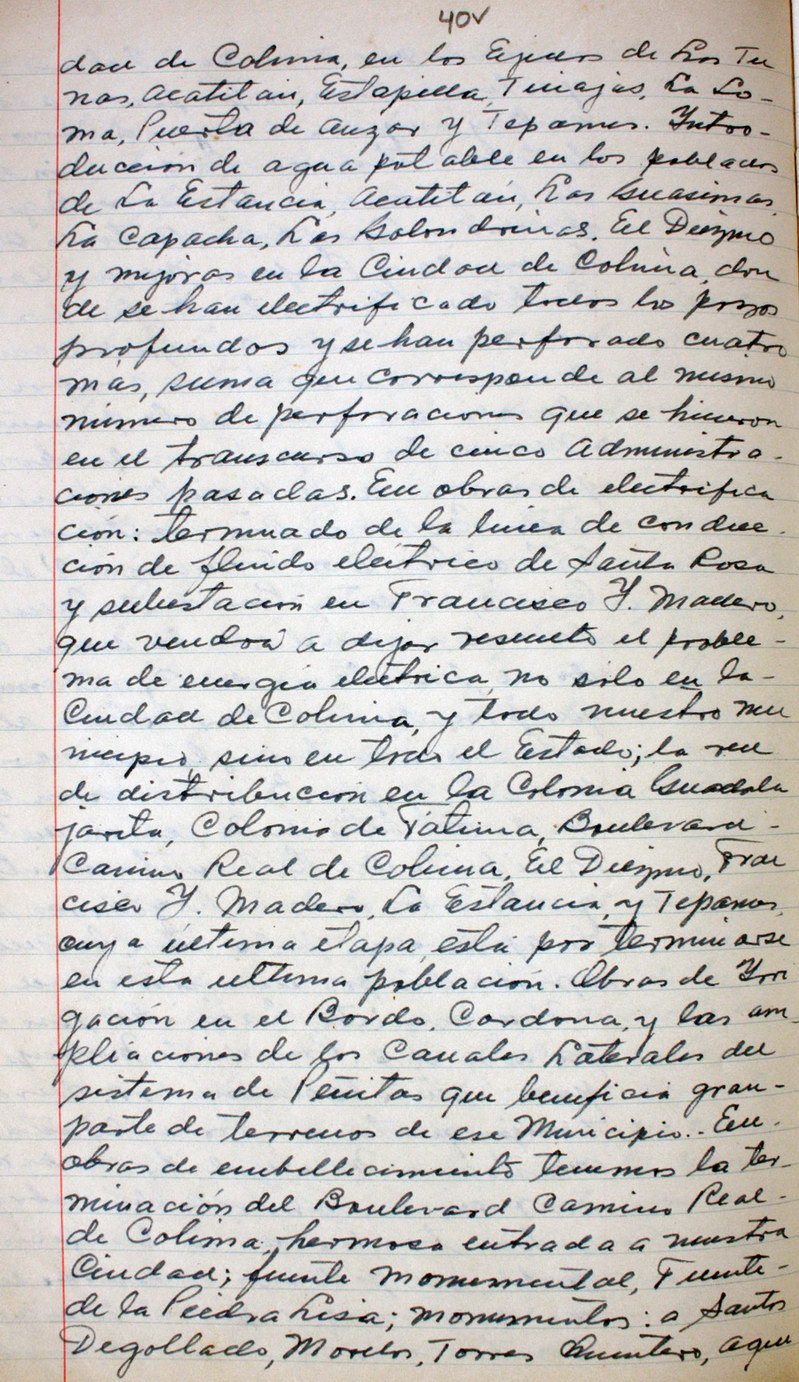 40v
dad de Colima, en los Ejidos de Las Tu
nas, Acatitan, Estapilla, Tinajas, La Lo-
ma, Puerta de Anzar y Tepames. Intro-
ducción de agua potable en los poblados
de La Estancia, Acatitán, Las Guasimas
La Capacha, Las Golondrinas, El Diezmo
y mejoras en la Ciudad de Colima, don
de se han electrificado todos los pozos
profundos y se han perforado cuatro
mas, suma que corresponde al mismo
número de perforaciones que se hicieron
en el transcurso de cinco Administra-
ciones pasadas. En obras de electrifica
ción: terminado de la linea de conduc-
ción de fluido eléctrico de Santa Rosa
y subestación en Francisco Y. Madero,
que vendrá a dejar resuelto el proble-
ma de energia electrica, no solo en la-
Ciudad de Colima, y todo nuestro mu
nicipio, sino en todo el Estado; la red
de distribución en la Colonia Guadala
jarita, Colonia de Fátima, Boulevard-
Camino Real de Colima, El Diezmo, Fran
cisco Y. Madero, La Estancia, y Tepames,
cuya última etapa está por terminarse
en esta ultima población. Obras de Yrri
gación en el Bordo, Cardona, y las am-
pliaciones de los Canales Laterales del
sistema de Peñitas que beneficia gran-
parte de terrenos de ese Municipio.- En-
obras de embellecimiento tenemos la ter-
minación del Boulevard Camino Real-
de Colima, hermosa entrada a nuestra
Ciudad; fuente monumental, Fuente-
de la Piedra Lisa; monumentos: a Santos
Degollado, Morelos, Torres Quintero, aqui